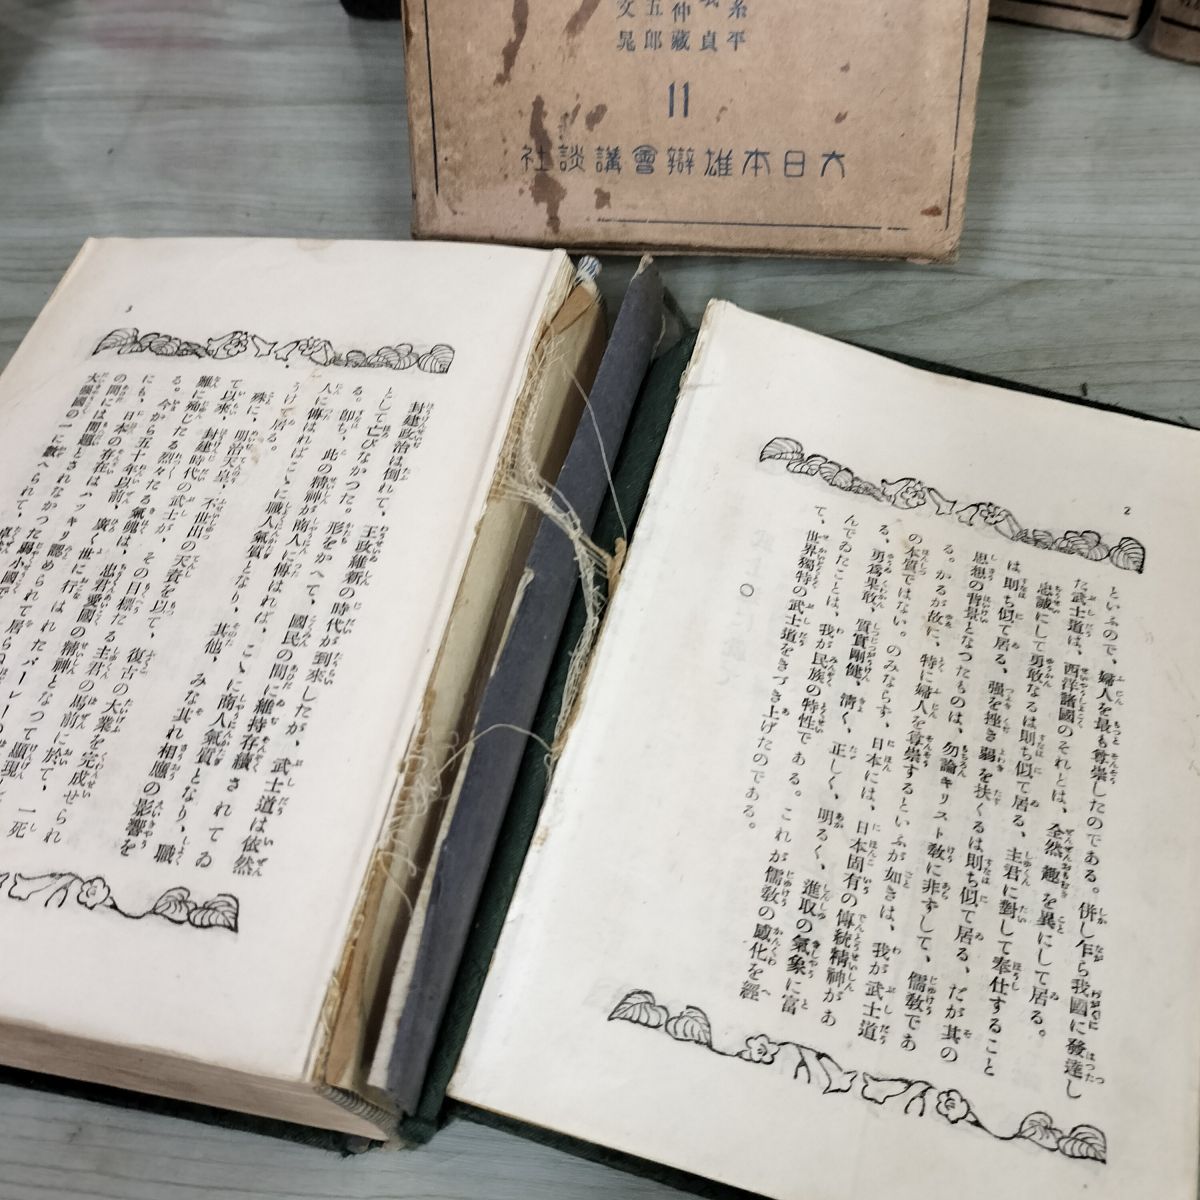 糸平
貞
仲藏
五郎
文晁
11
大日本雄辯會講談社
2
といふので、婦人を最も尊崇したのである。併し乍ら我國に發達し
た武士道は、西洋諸國のそれとは、全然趣を異にして居る。
忠誠にして勇敢なるは則ち似て居る、主君に對して奉仕すること
は則ち似て居る、強を挫き弱を扶くるは則ち似て居る、だが其の
思想の背景となつたものは、勿論キリスト教に非ずして、儒教であ
る。かるが故に、特に婦人を尊崇するといふが如きは、我が武士道
の本質ではない。のみならず、日本には、日本固有の傳統精神があ
る、勇爲果敢、質實剛健、清く、正しく、明るく、進取の氣象に富
んでゐたことは、我が民族の特性である。これが儒教の感化を經
て、世界獨特の武士道をきづき上げたのである。
○
3
封建政治は倒れて、王政維新の時代が到來したが、武士道は依然
として亡びなかつた。形をかへて、國民の間に維持存續されてゐ
る。卽ち、此の精神が商人に傳はれば、こゝに商人氣質となり、職
人に傳はればこゝに職人氣質となり、其他、みな其れ相應の影響を
うけ居る。
殊に、明治天皇、不世出の天資を以て、復古の大業を完成せられ
て以來、封建時代の武士が、その目標たる主君の馬前に於て、一死
難に殉じたる烈々たる氣魄は、忠君愛國の精神となつて顯現し
る。今から五十年以前、廣く世に行はれたパーレーの
にも、日本の存在はハッキリ認められて
の間には問題とされなかつた弱小國で居らぬ
大強國の一に數へられて、